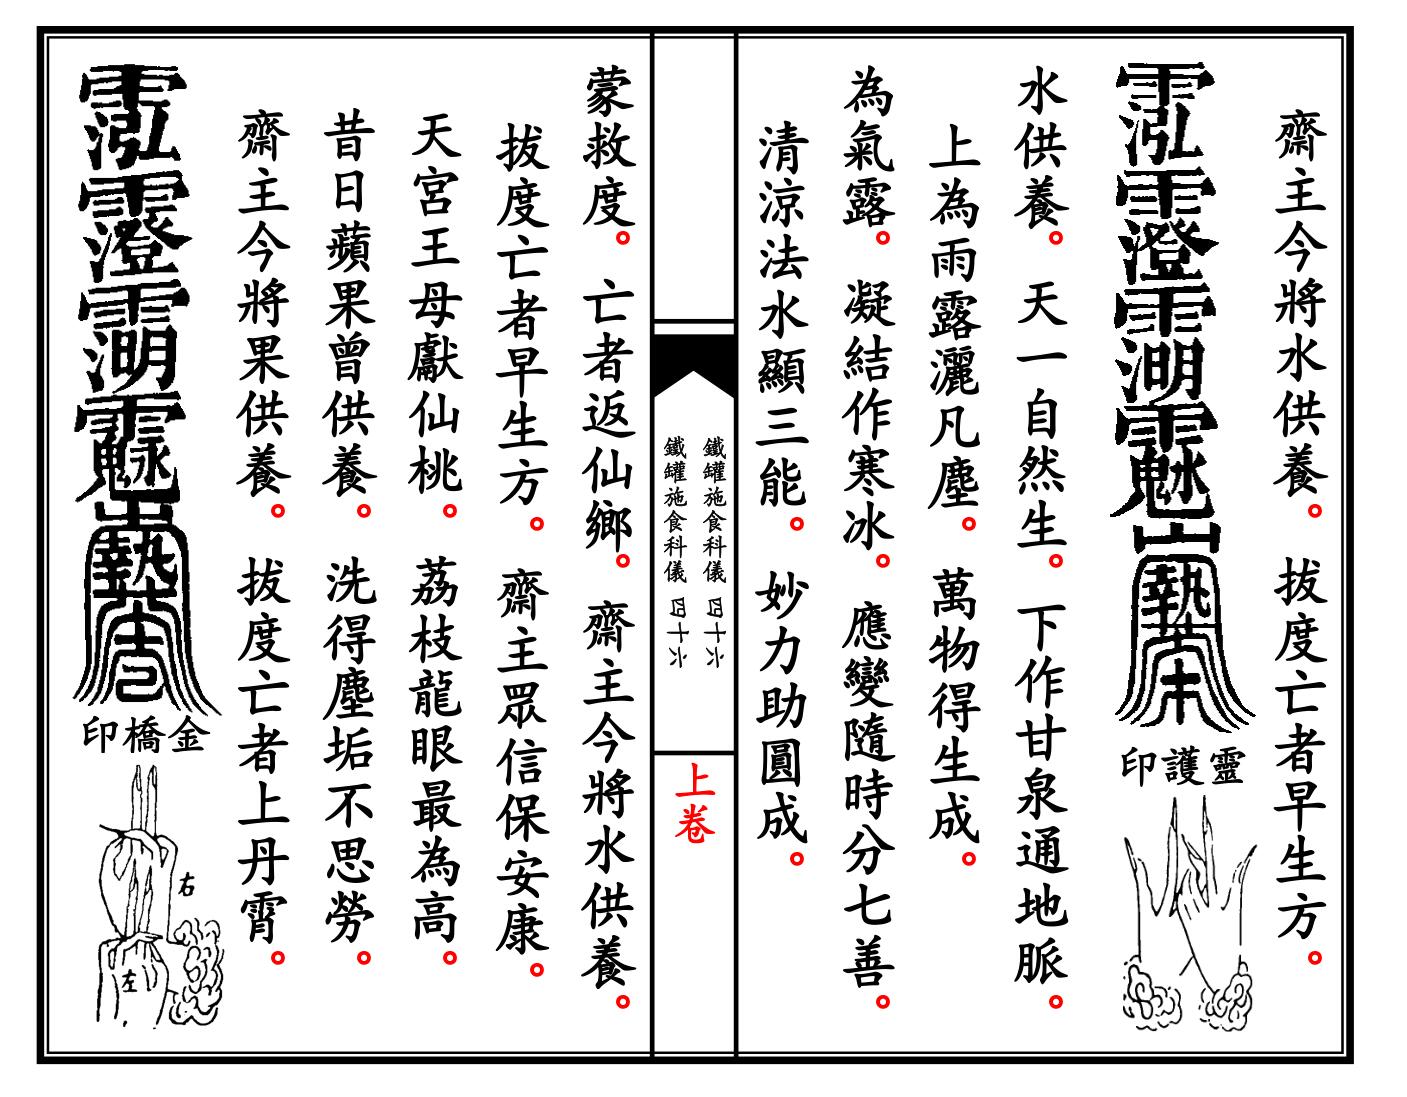 齋主今將水供養。拔度亡者早生方。
靈護印
水供養。天一自然生。下作甘泉通地脈。
上為雨露灑凡塵。萬物得生成。
為氣露。凝結作寒冰。應變隨時分七善。
清涼法水顯三能。妙力助圓成。
鐵罐施食科儀 四十六
鐵罐施食科儀 四十六
上卷
蒙救度。亡者返仙鄉。齋主今將水供養。
拔度亡者早生方。齋主眾信保安康。
天宮王母獻仙桃。荔枝龍眼最為高。
昔日蘋果曾供養。洗得塵垢不思勞。
齋主今將果供養。拔度亡者上丹霄。
金橋印
右
左